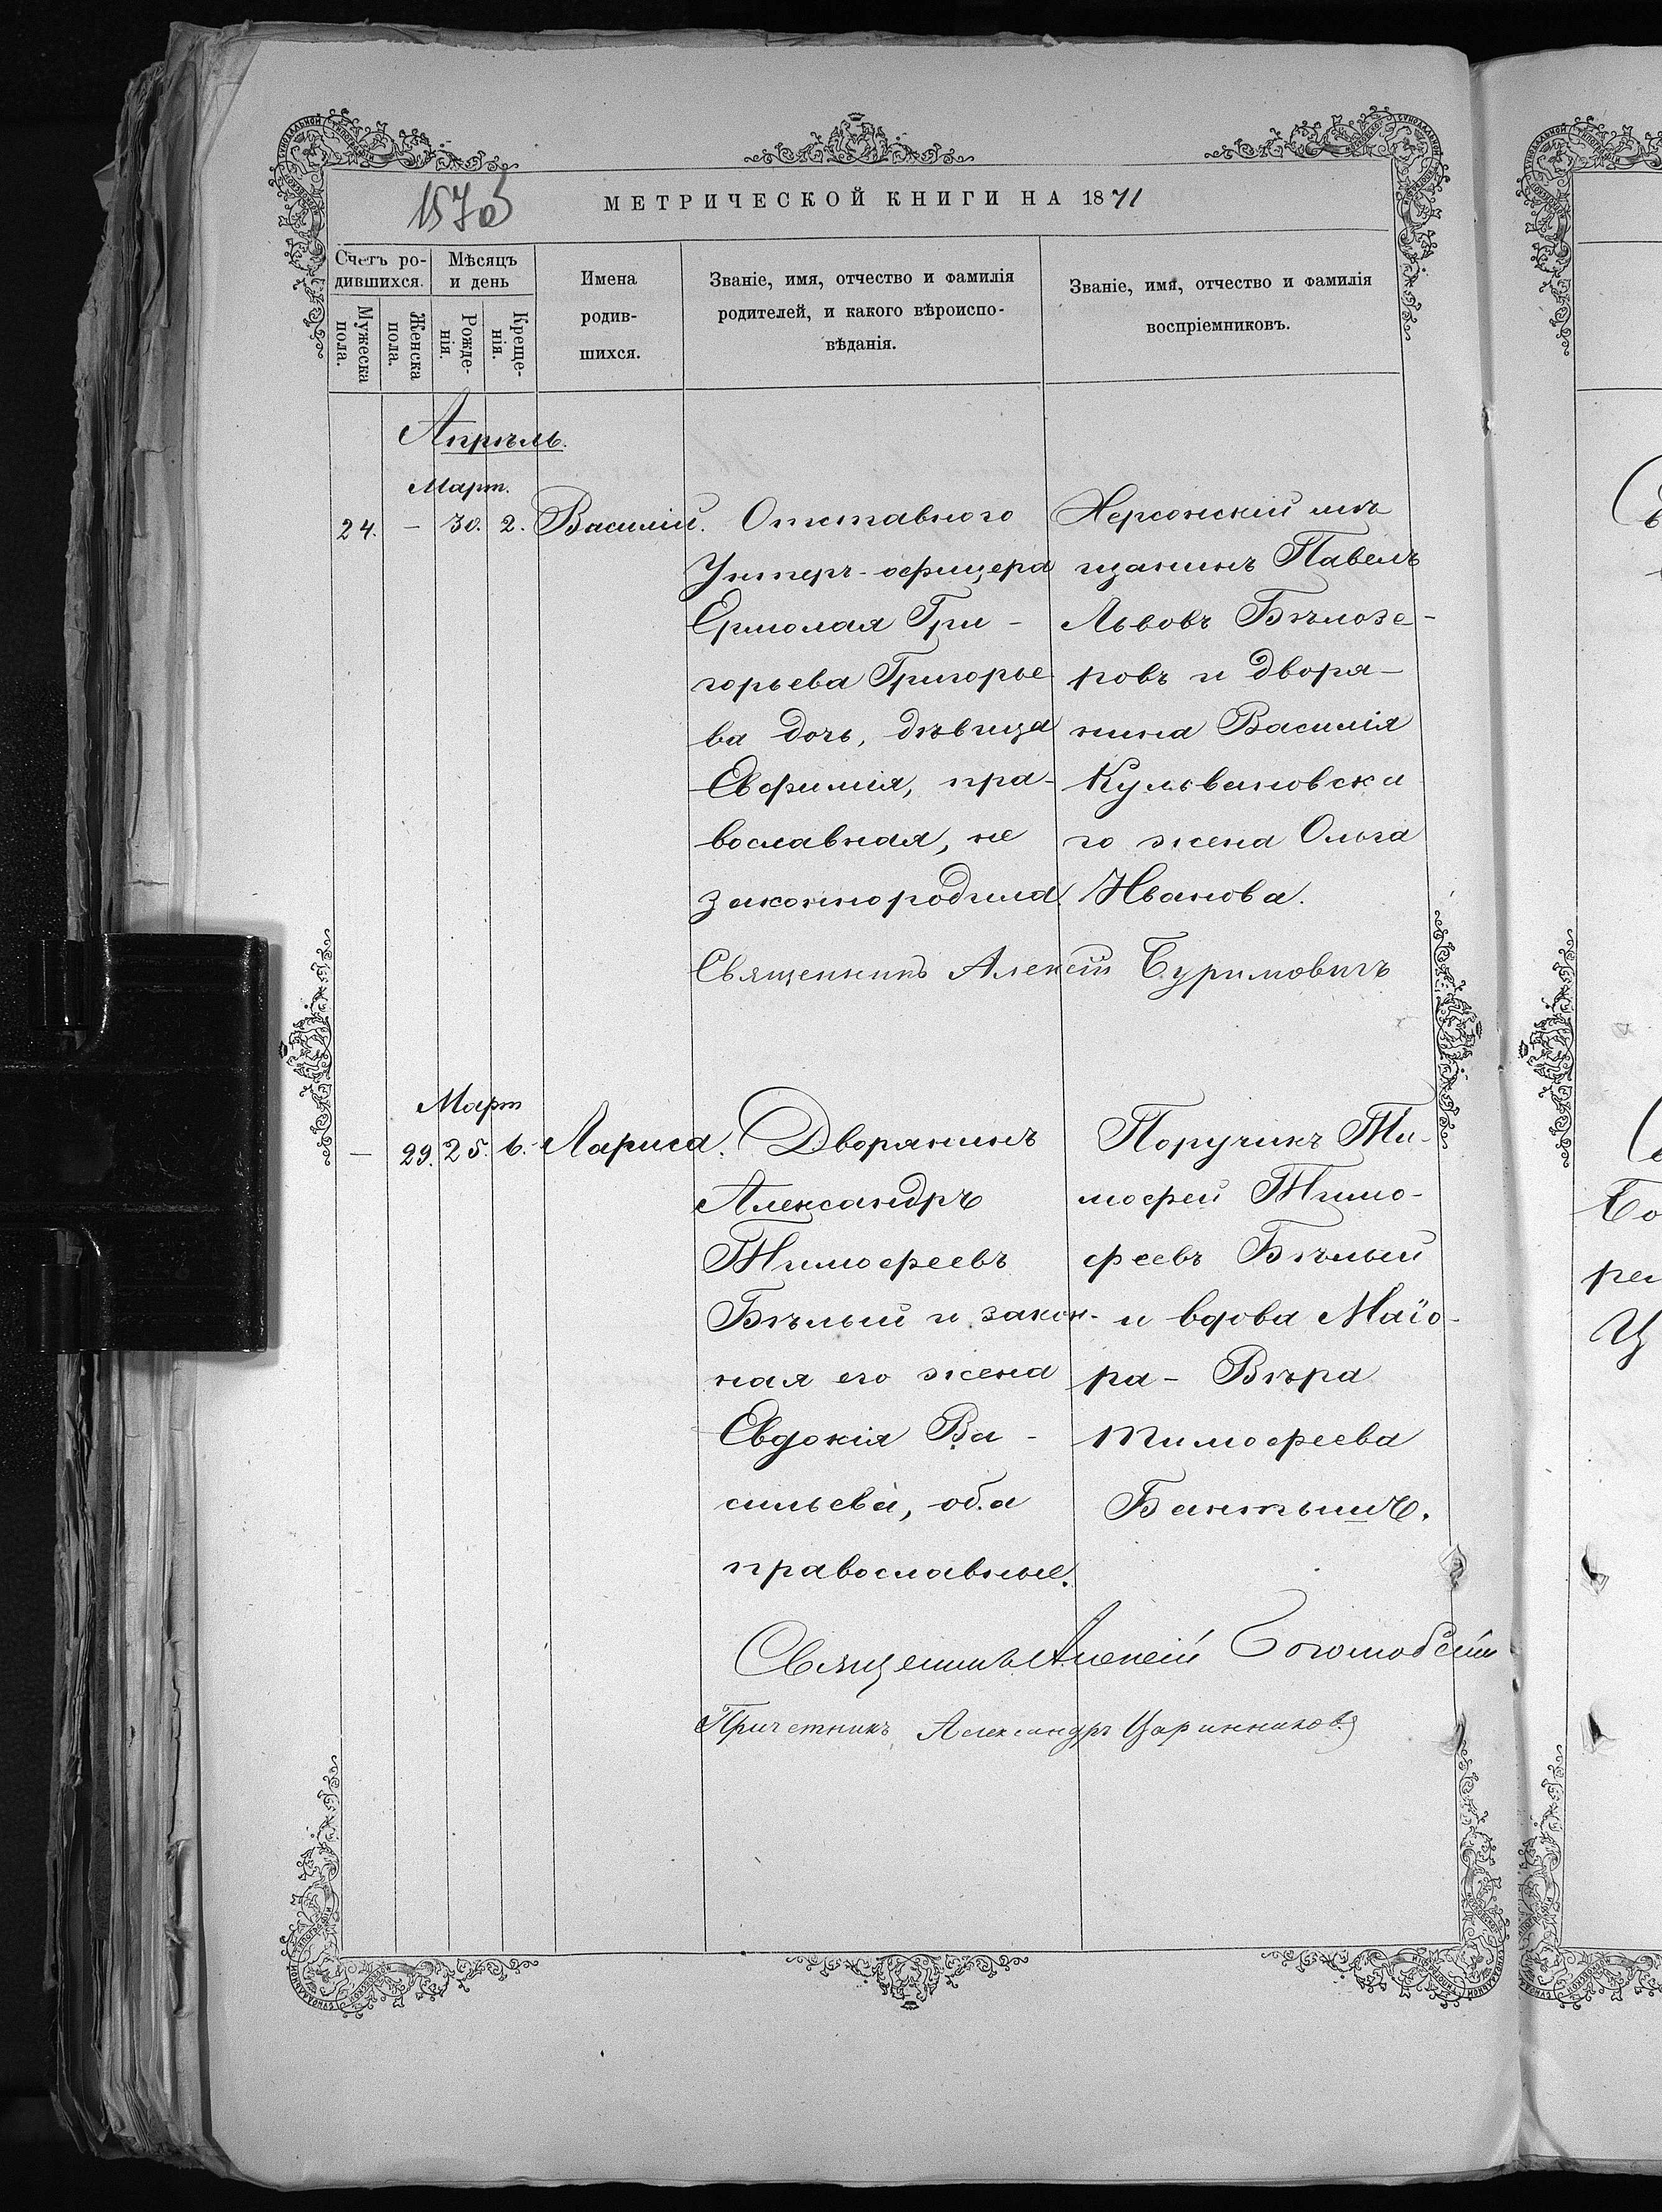 1570
МЕТРИЧЕСКОЙ КНИГИ НА 1871
Счетъ ро-
дившихся.
Мѣсяцъ
и день
Мужеска
пола.
Женска
пола.
Рожде-
нія.
Креще-
нія.
Имена
родив-
шихся.
Званіе, имя, отчество и фамилія
родителей, и какого вѣроиспо-
вѣданія.
Званіе, имя, отчество и фамилія
воспріемниковъ.
Апрѣль.
Март.
24. — 30. 2. Василій.
Отставного
Унтеръ-офицера
Ермолая Гри-
горьева Григорье
ва дочь, дѣвица
Евфимія, пра-
вославная, не
законнородила
Херсонскій мѣ
щанинъ Павелъ
Львовъ Бѣлозе-
ровъ и дворя-
нина Василія
Кульвановска
го жена Ольга
Иванова.
Священникъ Алексѣй Буримовичъ
Март
— 29. 25. 6. Лариса.
Дворянинъ
Александръ
Тимофеевъ
Бѣлый и закон-
ная его жена
Евдокія Ва-
сильева, оба
православные.
Поручикъ Ти-
мофей Тимо-
феевъ Бѣлый
и вдова Маіо-
ра- Вѣра
Тимофеева
Бантышъ.
Священникъ Алексій
Причетникъ Александръ Царинниковъ